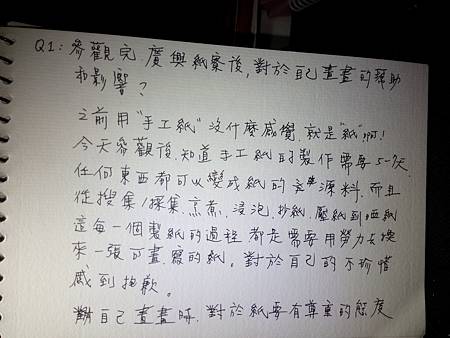 Q1: 參觀完 廣興紙寮後, 對於自己畫畫的幫助
和影響?
之前用"手工紙"沒什麼感覺, 就是"紙"啊!
今天參觀後, 知道手工紙的製作需要5-7天.
任何東西都可以變成紙的來源料. 而且
從搜集/採集.烹煮、浸泡.抄紙.壓紙到晒紙
這每一個製紙的過程 都是需要用勞力去換
來一張可畫.寫的紙。對於自己的不珍惜
感到抱歉。
對自己畫畫時. 對於紙要有尊重的態度